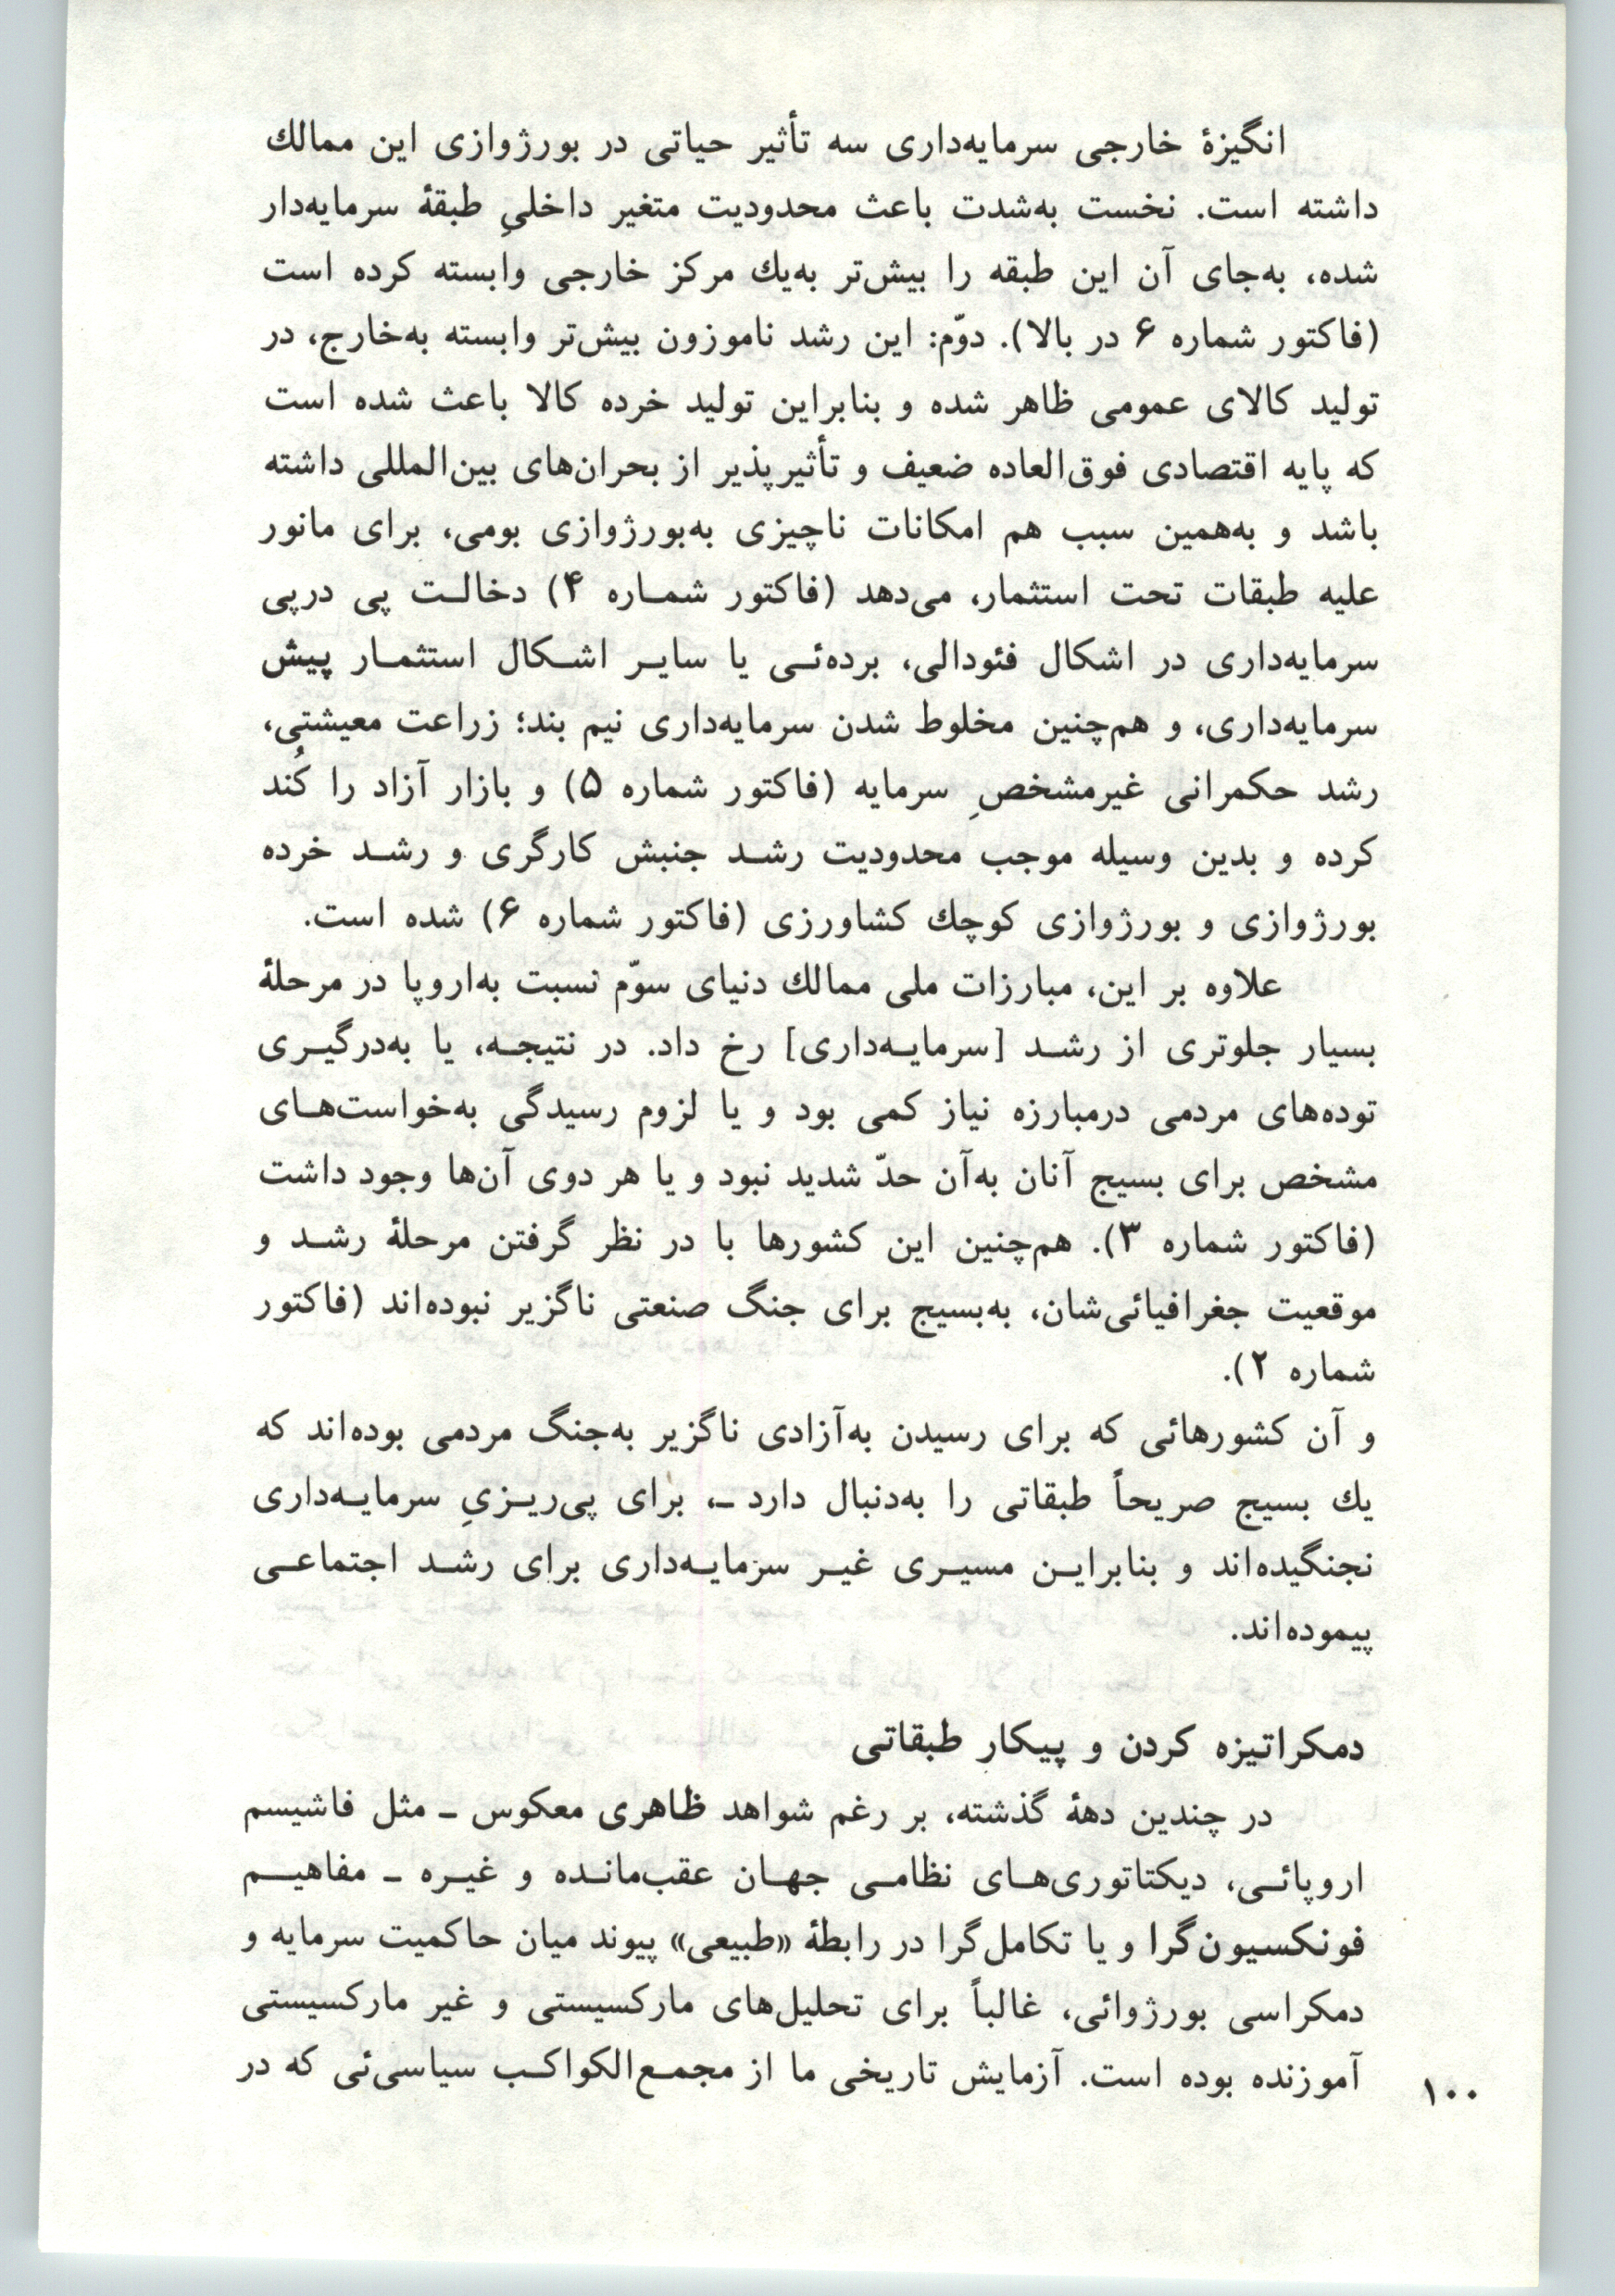 انگیزهٔ خارجی سرمایه‌داری سه تأثیر حیاتی در بورژوازی این ممالك
داشته است. نخست به‌شدت باعث محدودیت متغیر داخلیِ طبقهٔ سرمایه‌دار
شده، به‌جای آن این طبقه را بیش‌تر به‌یك مرکز خارجی وابسته کرده است
(فاکتور شماره ۶ در بالا). دوّم: این رشد ناموزون بیش‌تر وابسته به‌خارج، در
تولید کالای عمومی ظاهر شده و بنابراین تولید خرده کالا باعث شده است
که پایه اقتصادی فوق‌العاده ضعیف و تأثیرپذیر از بحران‌های بین‌المللی داشته
باشد و به‌همین سبب هم امکانات ناچیزی به‌بورژوازی بومی، برای مانور
علیه طبقات تحت استثمار، می‌دهد (فاکتور شمـاره ۴) دخالـت پی درپی
سرمایه‌داری در اشکال فئودالی، برده‌ئـی یا سایـر اشـکال استثمـار پیش
سرمایه‌داری، و هم‌چنین مخلوط شدن سرمایه‌داری نیم بند؛ زراعت معیشتی،
رشد حکمرانی غیرمشخصِ سرمایه (فاکتور شماره ۵) و بازار آزاد را کُند
کرده و بدین وسیله موجب محدودیت رشـد جنبش کارگری و رشـد خرده
بورژوازی و بورژوازی کوچك کشاورزی (فاکتور شماره ۶) شده است.
علاوه بر این، مبارزات ملی ممالك دنیای سوّم نسبت به‌اروپا در مرحلهٔ
بسیار جلوتری از رشـد [سرمایـه‌داری] رخ داد. در نتیجـه، یا به‌درگیـری
توده‌های مردمی درمبارزه نیاز کمی بود و یا لزوم رسیدگی به‌خواست‌هـای
مشخص برای بسیج آنان به‌آن حدّ شدید نبود و یا هر دوی آن‌ها وجود داشت
(فاکتور شماره ۳). هم‌چنین این کشورها با در نظر گرفتن مرحلهٔ رشـد و
موقعیت جغرافیائی‌شان، به‌بسیج برای جنگ صنعتی ناگزیر نبوده‌اند (فاکتور
شماره ۲).
و آن کشورهائی که برای رسیدن به‌آزادی ناگزیر به‌جنگ مردمی بوده‌اند که
یك بسیج صریحاً طبقاتی را به‌دنبال دارد ـ، برای پی‌ریـزیِ سرمایـه‌داری
نجنگیده‌اند و بنابرایـن مسیـری غیـر سرمایـه‌داری برای رشـد اجتماعـی
پیموده‌اند.
دمکراتیزه کردن و پیکار طبقاتی
در چندین دههٔ گذشته، بر رغم شواهد ظاهری معکوس ـ مثل فاشیسم
اروپائـی، دیکتاتوری‌هـای نظامـی جهـان عقب‌مانـده و غیـره ـ مفاهیـم
فونکسیون‌گرا و یا تکامل‌گرا در رابطهٔ «طبیعی» پیوند میان حاکمیت سرمایه و
دمکراسی بورژوائی، غالباً برای تحلیل‌های مارکسیستی و غیر مارکسیستی
آموزنده بوده است. آزمایش تاریخی ما از مجمـع‌الکواکـب سیاسی‌ئی که در
۱۰۰